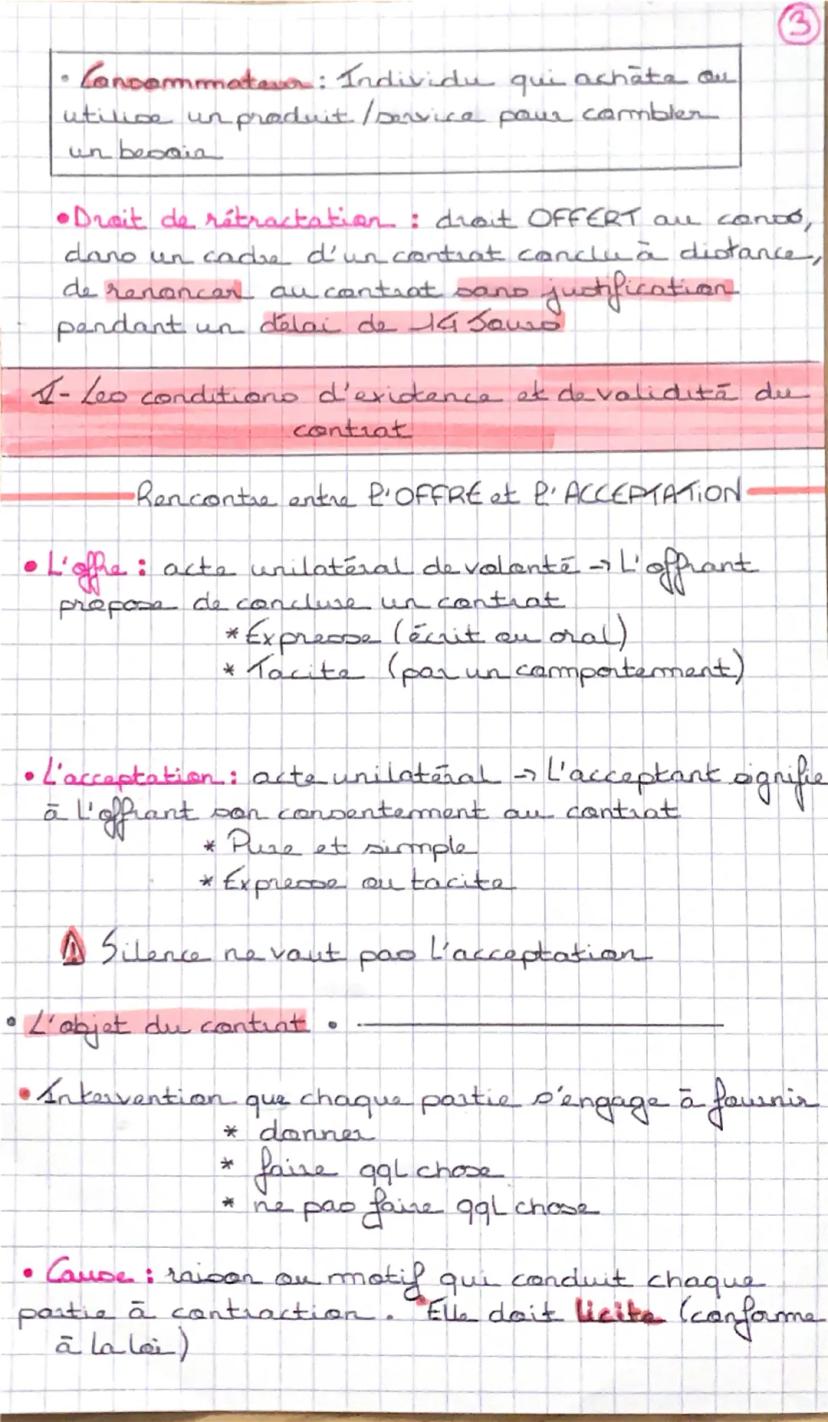 3
• Consommateur : Individu qui achète ou
utilise un produit / service pour combler
un besoin
• Droit de rétractation : droit OFFERT au conso,
dans un cadre d'un contrat conclu à distance,
de renoncer au contrat sans justification
pendant un délai de 14 Jours
I - Les conditions d'existence et de validité du
contrat
Rencontre entre l'OFFRE et l'ACCEPTATION
• L'offre : acte unilatéral de volonté → L'offrant
propose de conclure un contrat
* Expresse (écrit ou oral)
* Tacite (par un comportement)
• L'acceptation : acte unilatéral → L'acceptant signifie
à l'offrant son consentement au contrat
* Pure et simple
* Expresse ou tacite
⚠ Silence ne vaut pas l'acceptation
• L'objet du contrat •
• Intervention que chaque partie s'engage à fournir
* donner
* faire qqL chose
* ne pas faire qqL chose
• Cause : raison ou motif qui conduit chaque
partie à contraction. Elle doit licite (conforme
à la loi)